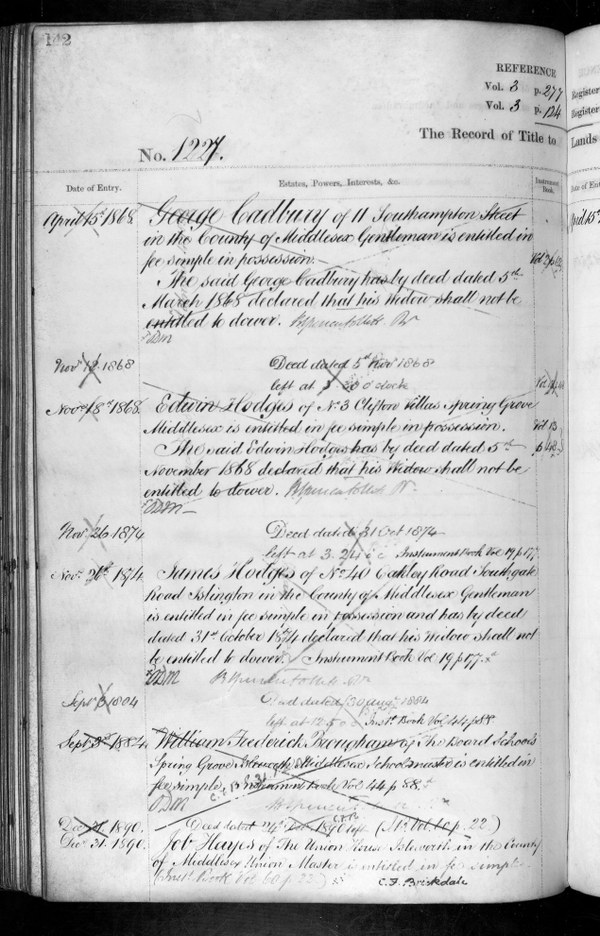 142
REFERENCE
Vol. 3 p. 277
Vol. 3 p. 124
Register
Register
The Record of Title to
Lands
No. 1227.
Date of Entry.
Estates, Powers, Interests, &c.
Instrument Book.
Date of Ent
April 15 1868
George Cadbury of 11 Southampton Street
April 15
in the County of Middlesex Gentleman is entitled in
fee simple in possession.
Vol
The said George Cadbury has by deed dated 5th
March 1868 declared that his Widow shall not be
entitled to dower.
Nov. 13 1868
Deed dated 5th Nov. 1868
left at 3.20 o'clock
Vol
Nov. 18th 1868
Edwin Hodges of No. 3 Clifton Villas Spring Grove
Middlesex is entitled in fee simple in possession.
Vol 13
The said Edwin Hodges has by deed dated 5th
November 1868 declared that his Widow shall not be
entitled to dower.
Nov. 26 1874
Deed dated 31 Oct 1874
left at 3.24 Instrument Book Vol 19 p 177
Nov. 1874
James Hodges of No. 40 Oakley Road Southgate
Road Islington in the County of Middlesex Gentleman
is entitled in fee simple in possession and has by deed
dated 31st October 1874 declared that his Widow shall not
be entitled to dower. Instrument Book Vol 19 p 177
Deed dated 30 Augt 1884
left at 12.50 Inst. Book Vol 44 p 88
Sept. 3rd 1884
William Frederick Brougham of The Board Schools
Spring Grove Isleworth Middlesex Schoolmaster is entitled in
fee simple. Instrument Book Vol 44 p 88.
Dec. 1890.
Deed dated 24 1890 (Vol. 60 p. 22.)
Dec. 31. 1890.
Job Hayes of The Union House Isleworth in the County
of Middlesex Union Master is entitled in fee simple
(Inst. Book Vol 60 p. 22)
C. F. Brickdale